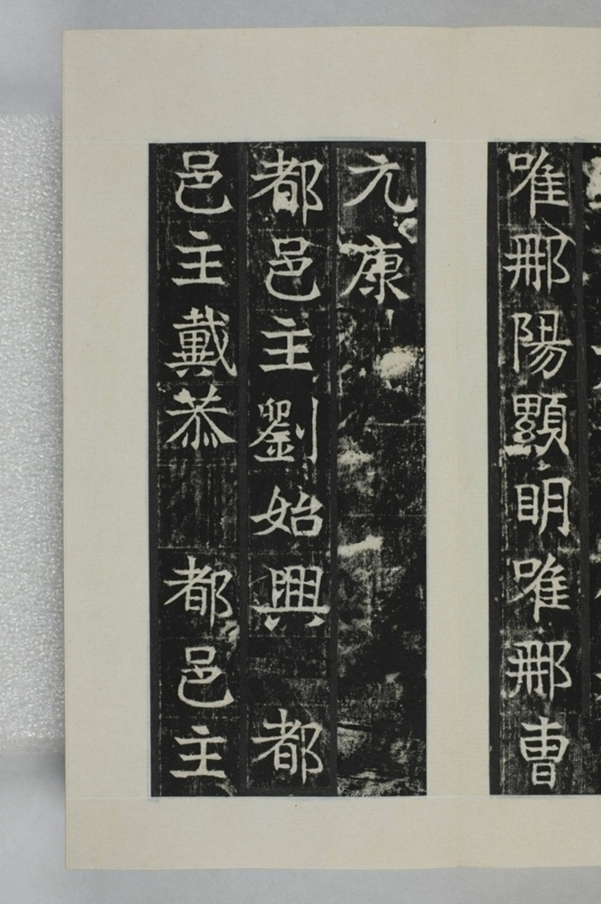 唯那陽顯明唯那曹
元康
都邑主劉始興 都
邑主戴恭 都邑主